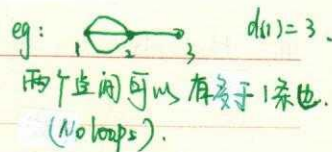 eg: 1 2 3 d(1)=3.
两个点间可以有多于1条边.
(No loops).